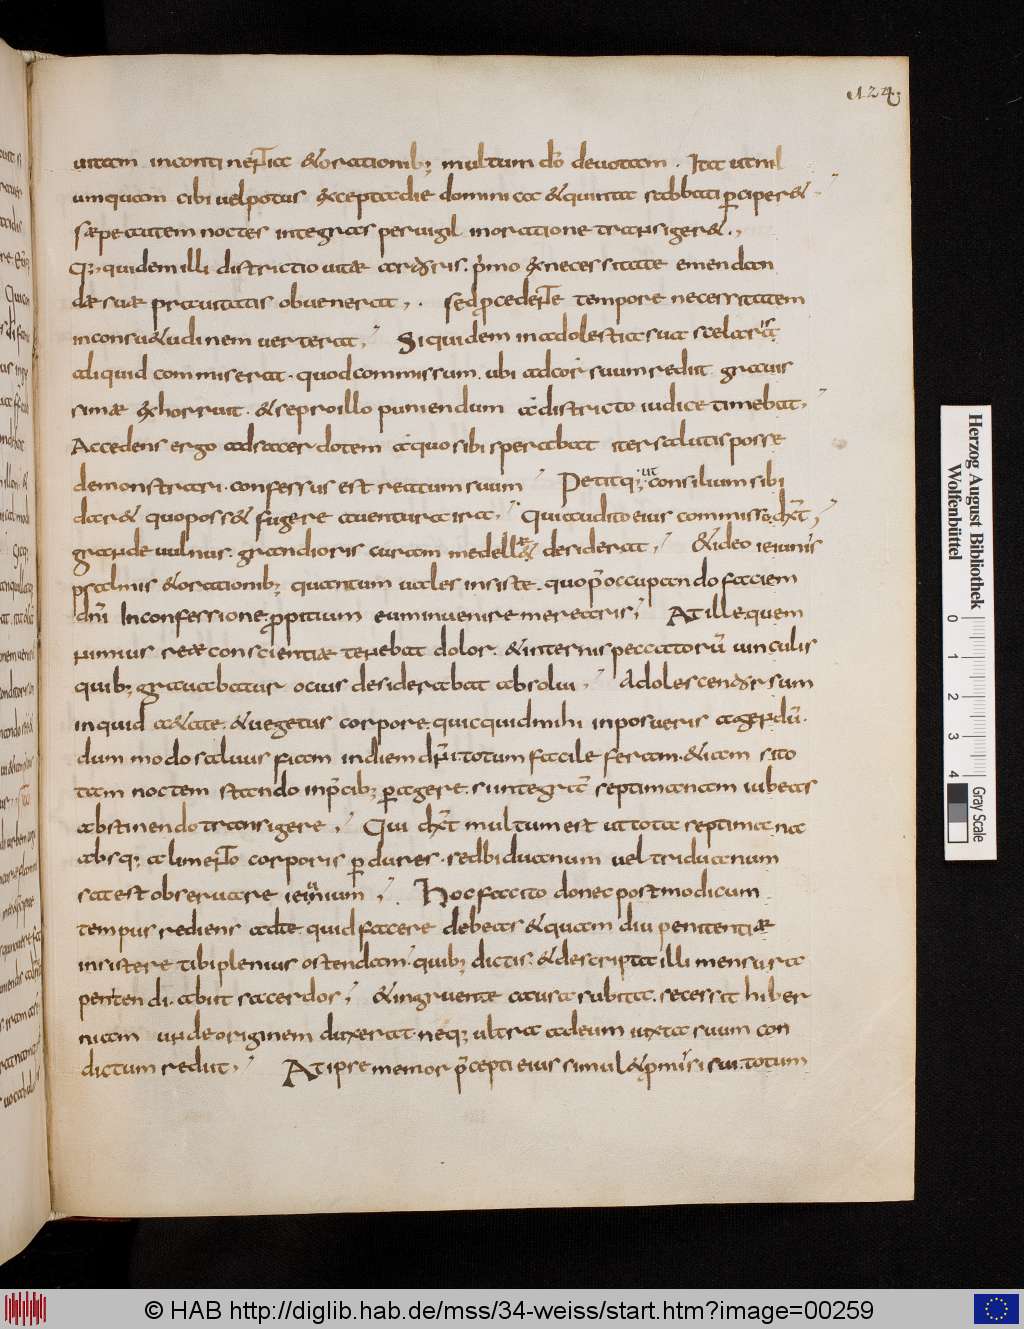 124
uitam in continentia & orationib; multum dō deuotam. Ita ut nil
umquam cibi uel potus excepta die dominica & quinta sabbati p̄ciper&.
sæpe autem noctes integras peruigil in oratione transiger&.,
Q; quidem illi districtio uitæ artioris. p̄mo ex necessitate emendan
dæ suæ prauitatis obuenerat,. sed p̄cedente tempore necessitatem
in consu&udinem uerterat, Siquidem in adolescentia sua sceleris
aliquid commiserat. quod commissum. ubi ad cor suum rediit grauis
simæ exhorruit. & se pro illo puniendum a districto iudice timebat,
Accedens ergo ad sacerdotem a quo sibi sperabat iter salutis posse
demonstrari. confessus est reatum suum Petiitq; ut consilium sibi
dar& quo poss& fugere a uentura ira, Qui audito eius commisso. dix̄,
grande uulnus. grandioris curam medellæ desiderat, & ideo ieiuniis
psalmis & orationib; quantum uales insiste. quo p̄occupando faciem
dn̄i In confessione. p̄pitium eum inuenire merearis, At ille. quem
nimius reæ conscientiæ tenebat dolor. & internis peccatorū uinculis
quib; grauabatur ocius desiderabat absolui, Adolescentior sum
inquid a&ate. & uegetus corpore. quicquid mihi inposueris agendū.
dum modo saluus fiam in diem dn̄i. totum facile feram. & iam si to
tam noctem stando in p̄cib; p̄agere. si integrā septimanam iubeas
abstinendo transigere, Qui dix̄ multum est ut tota septimana
absq; alimento corporis p̄dures. sed biduanum uel triduanum
sat est obseruare ieiunium, Hoc facito donec post modicum
tempus rediens ad te. quid facere debeas & quam diu penitentiæ
insistere tibi plenius ostendam. quib; dictis. & descripta illi mensura
penitendi. abiit sacerdos, & ingruente causa subita. secessit hiber
niam unde originem duxerat. neq; ultra ad eum iuxta suum con
dictum rediit, At ipse memor p̄cepti eius simul & p̄missi sui. totum
Herzog August Bibliothek
Wolfenbüttel
0 1 2 3 4
Gray Scale
© HAB http://diglib.hab.de/mss/34-weiss/start.htm?image=00259